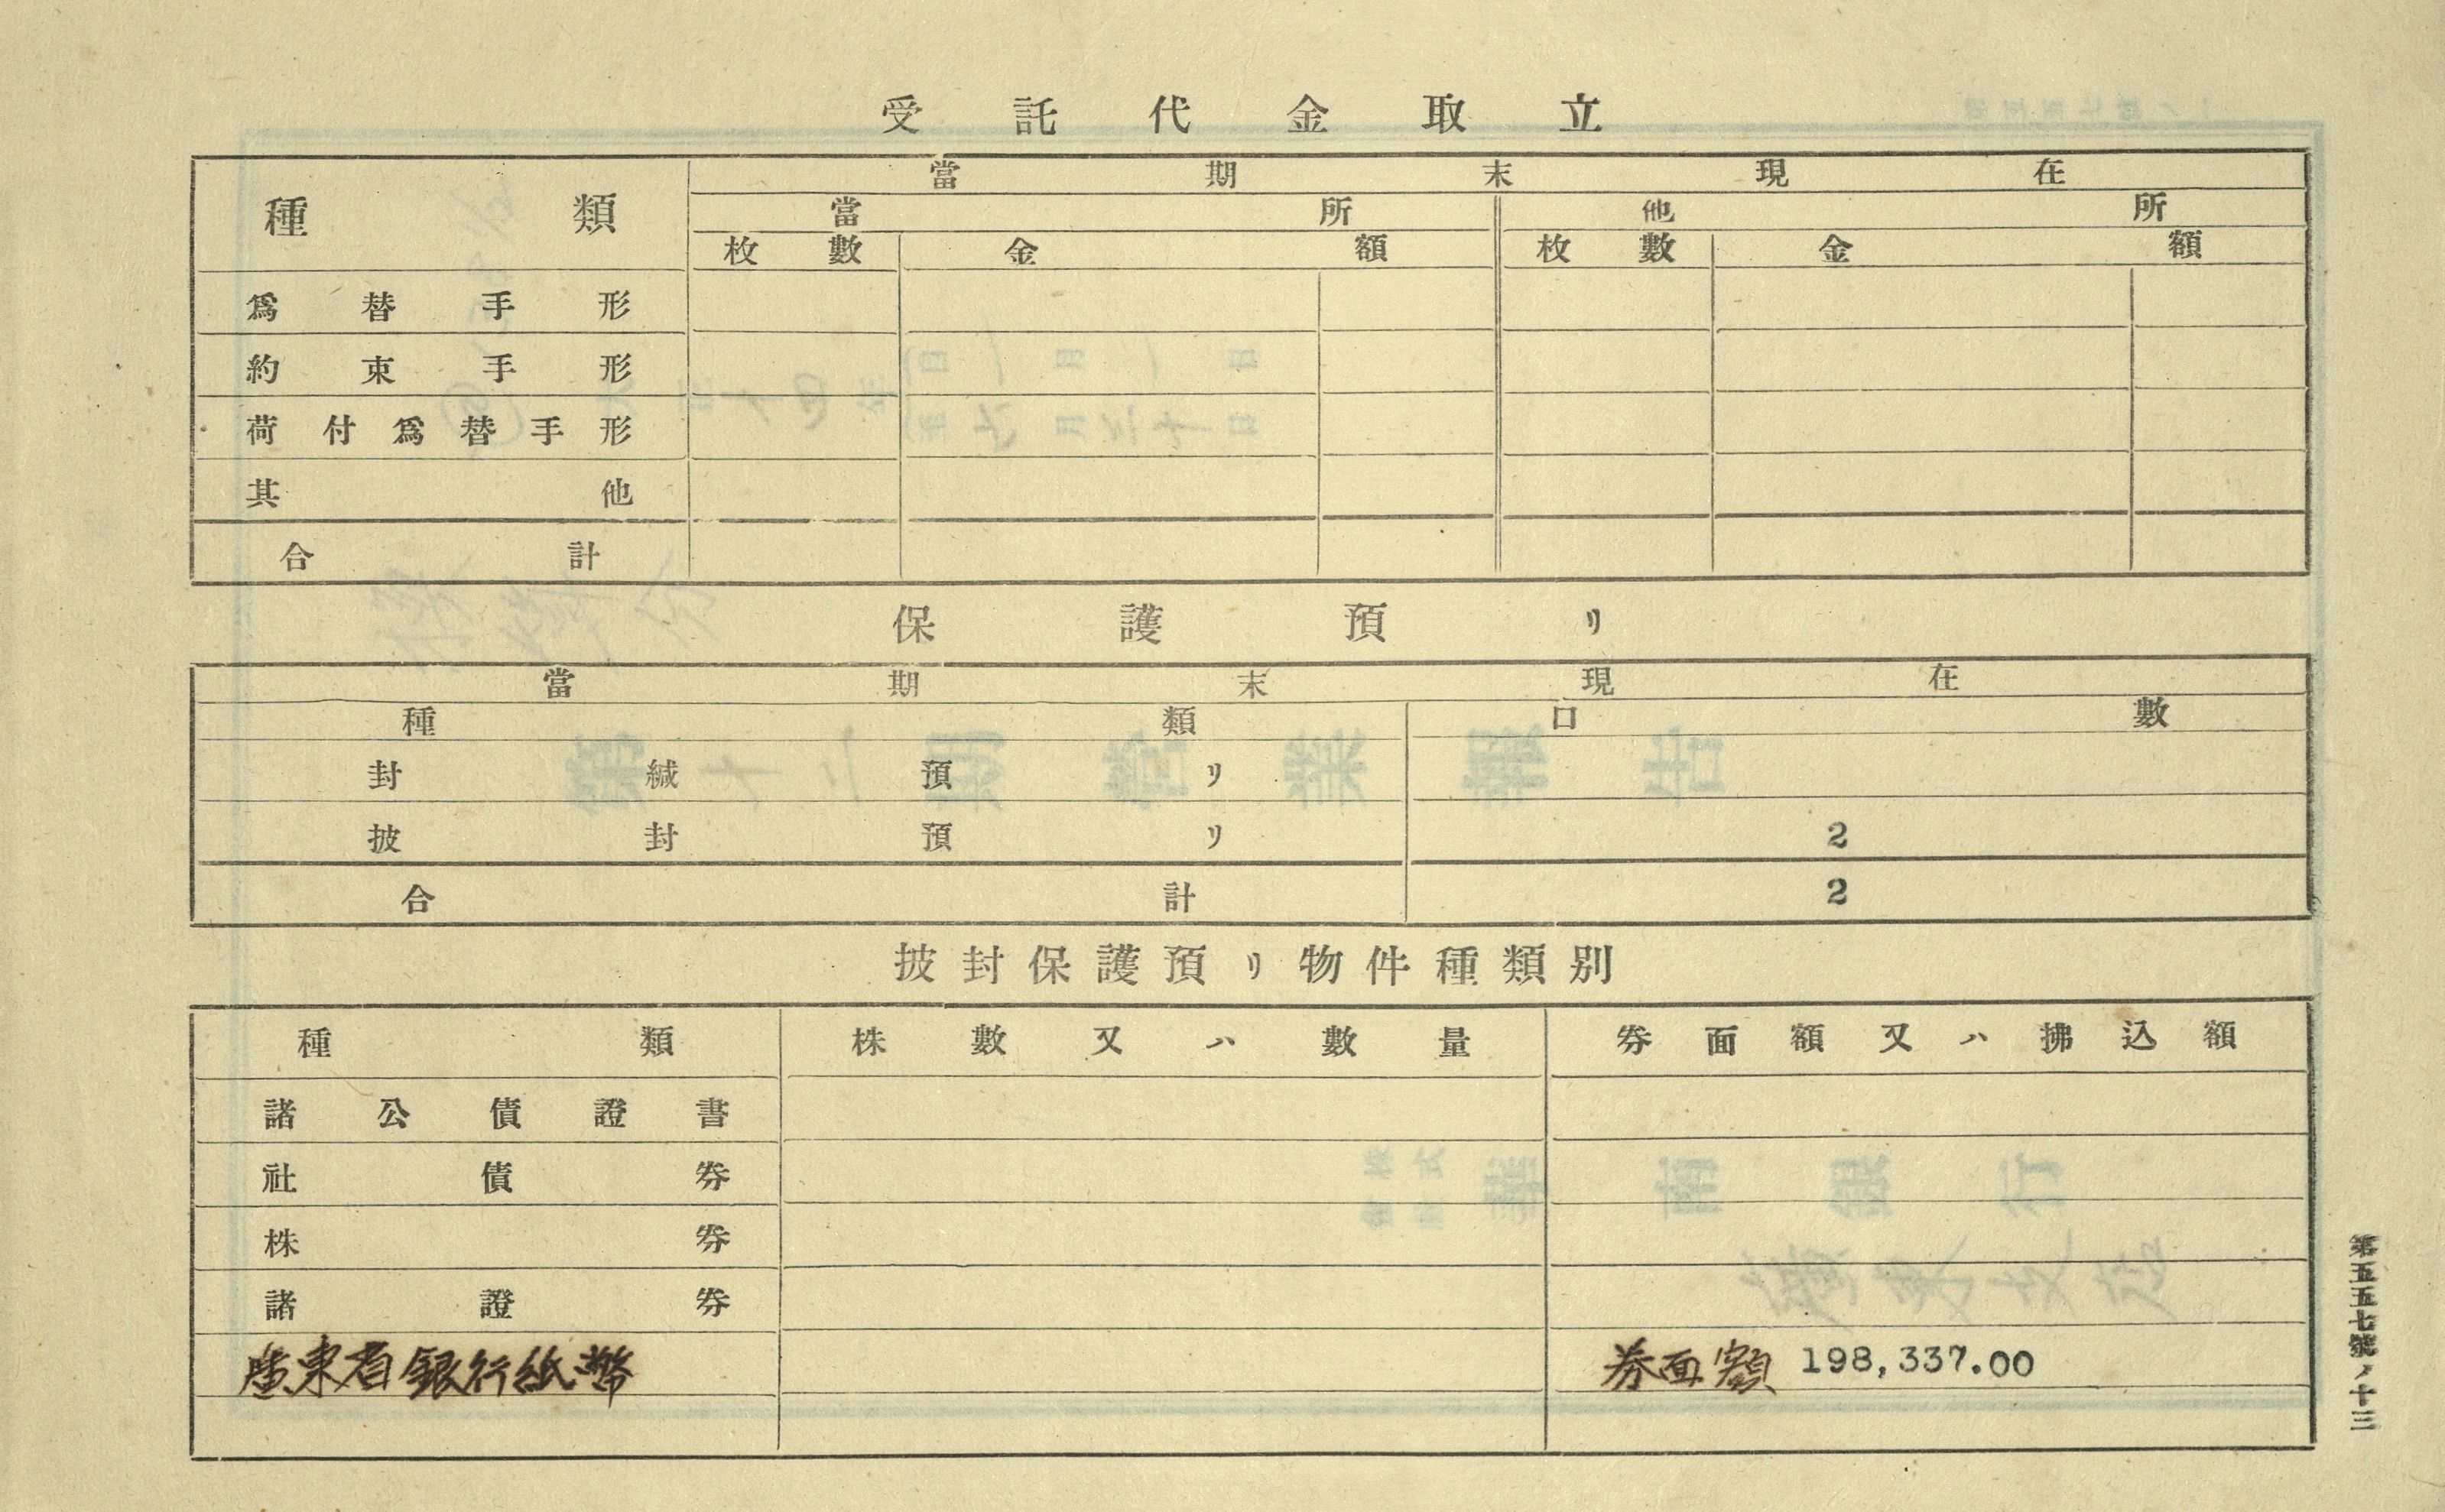 受託代金取立
種類 當期末現在
當所 他所
枚數 金額 枚數 金額
爲替手形
約束手形
荷付爲替手形
其他
合計
保護預リ
當期末現在
種類 口數
封緘預リ
披封預リ 2
合計 2
披封保護預リ物件種類別
種類 株數又ハ數量 券面額又ハ拂込額
諸公債證書
社債券
株券
諸證券
廣東省銀行紙幣 券面額 198,337.00
第五五七號ノ十三